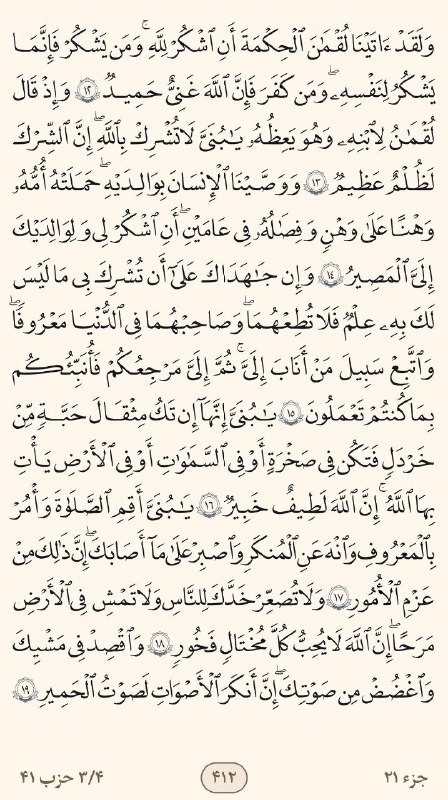 وَلَقَدْ ءَاتَيْنَا لُقْمَٰنَ ٱلْحِكْمَةَ أَنِ ٱشْكُرْ لِلَّهِ ۚ وَمَن يَشْكُرْ فَإِنَّمَا
يَشْكُرُ لِنَفْسِهِۦ ۖ وَمَن كَفَرَ فَإِنَّ ٱللَّهَ غَنِىٌّ حَمِيدٌ ١٢ وَإِذْ قَالَ
لُقْمَٰنُ لِٱبْنِهِۦ وَهُوَ يَعِظُهُۥ يَٰبُنَىَّ لَا تُشْرِكْ بِٱللَّهِ ۖ إِنَّ ٱلشِّرْكَ
لَظُلْمٌ عَظِيمٌ ١٣ وَوَصَّيْنَا ٱلْإِنسَٰنَ بِوَٰلِدَيْهِ حَمَلَتْهُ أُمُّهُۥ
وَهْنًا عَلَىٰ وَهْنٍ وَفِصَٰلُهُۥ فِى عَامَيْنِ أَنِ ٱشْكُرْ لِى وَلِوَٰلِدَيْكَ
إِلَىَّ ٱلْمَصِيرُ ١٤ وَإِن جَٰهَدَاكَ عَلَىٰٓ أَن تُشْرِكَ بِى مَا لَيْسَ
لَكَ بِهِۦ عِلْمٌ فَلَا تُطِعْهُمَا ۖ وَصَاحِبْهُمَا فِى ٱلدُّنْيَا مَعْرُوفًا ۖ
وَٱتَّبِعْ سَبِيلَ مَنْ أَنَابَ إِلَىَّ ۚ ثُمَّ إِلَىَّ مَرْجِعُكُمْ فَأُنَبِّئُكُم
بِمَا كُنتُمْ تَعْمَلُونَ ١٥ يَٰبُنَىَّ إِنَّهَآ إِن تَكُ مِثْقَالَ حَبَّةٍ مِّنْ
خَرْدَلٍ فَتَكُن فِى صَخْرَةٍ أَوْ فِى ٱلسَّمَٰوَٰتِ أَوْ فِى ٱلْأَرْضِ يَأْتِ
بِهَا ٱللَّهُ ۚ إِنَّ ٱللَّهَ لَطِيفٌ خَبِيرٌ ١٦ يَٰبُنَىَّ أَقِمِ ٱلصَّلَوٰةَ وَأْمُرْ
بِٱلْمَعْرُوفِ وَٱنْهَ عَنِ ٱلْمُنكَرِ وَٱصْبِرْ عَلَىٰ مَآ أَصَابَكَ ۖ إِنَّ ذَٰلِكَ مِنْ
عَزْمِ ٱلْأُمُورِ ١٧ وَلَا تُصَعِّرْ خَدَّكَ لِلنَّاسِ وَلَا تَمْشِ فِى ٱلْأَرْضِ
مَرَحًا ۖ إِنَّ ٱللَّهَ لَا يُحِبُّ كُلَّ مُخْتَالٍ فَخُورٍ ١٨ وَٱقْصِدْ فِى مَشْيِكَ
وَٱغْضُضْ مِن صَوْتِكَ ۚ إِنَّ أَنكَرَ ٱلْأَصْوَٰتِ لَصَوْتُ ٱلْحَمِيرِ ١٩
جزء ٢١ ٤١٢ ٣/٤ حزب ٤١